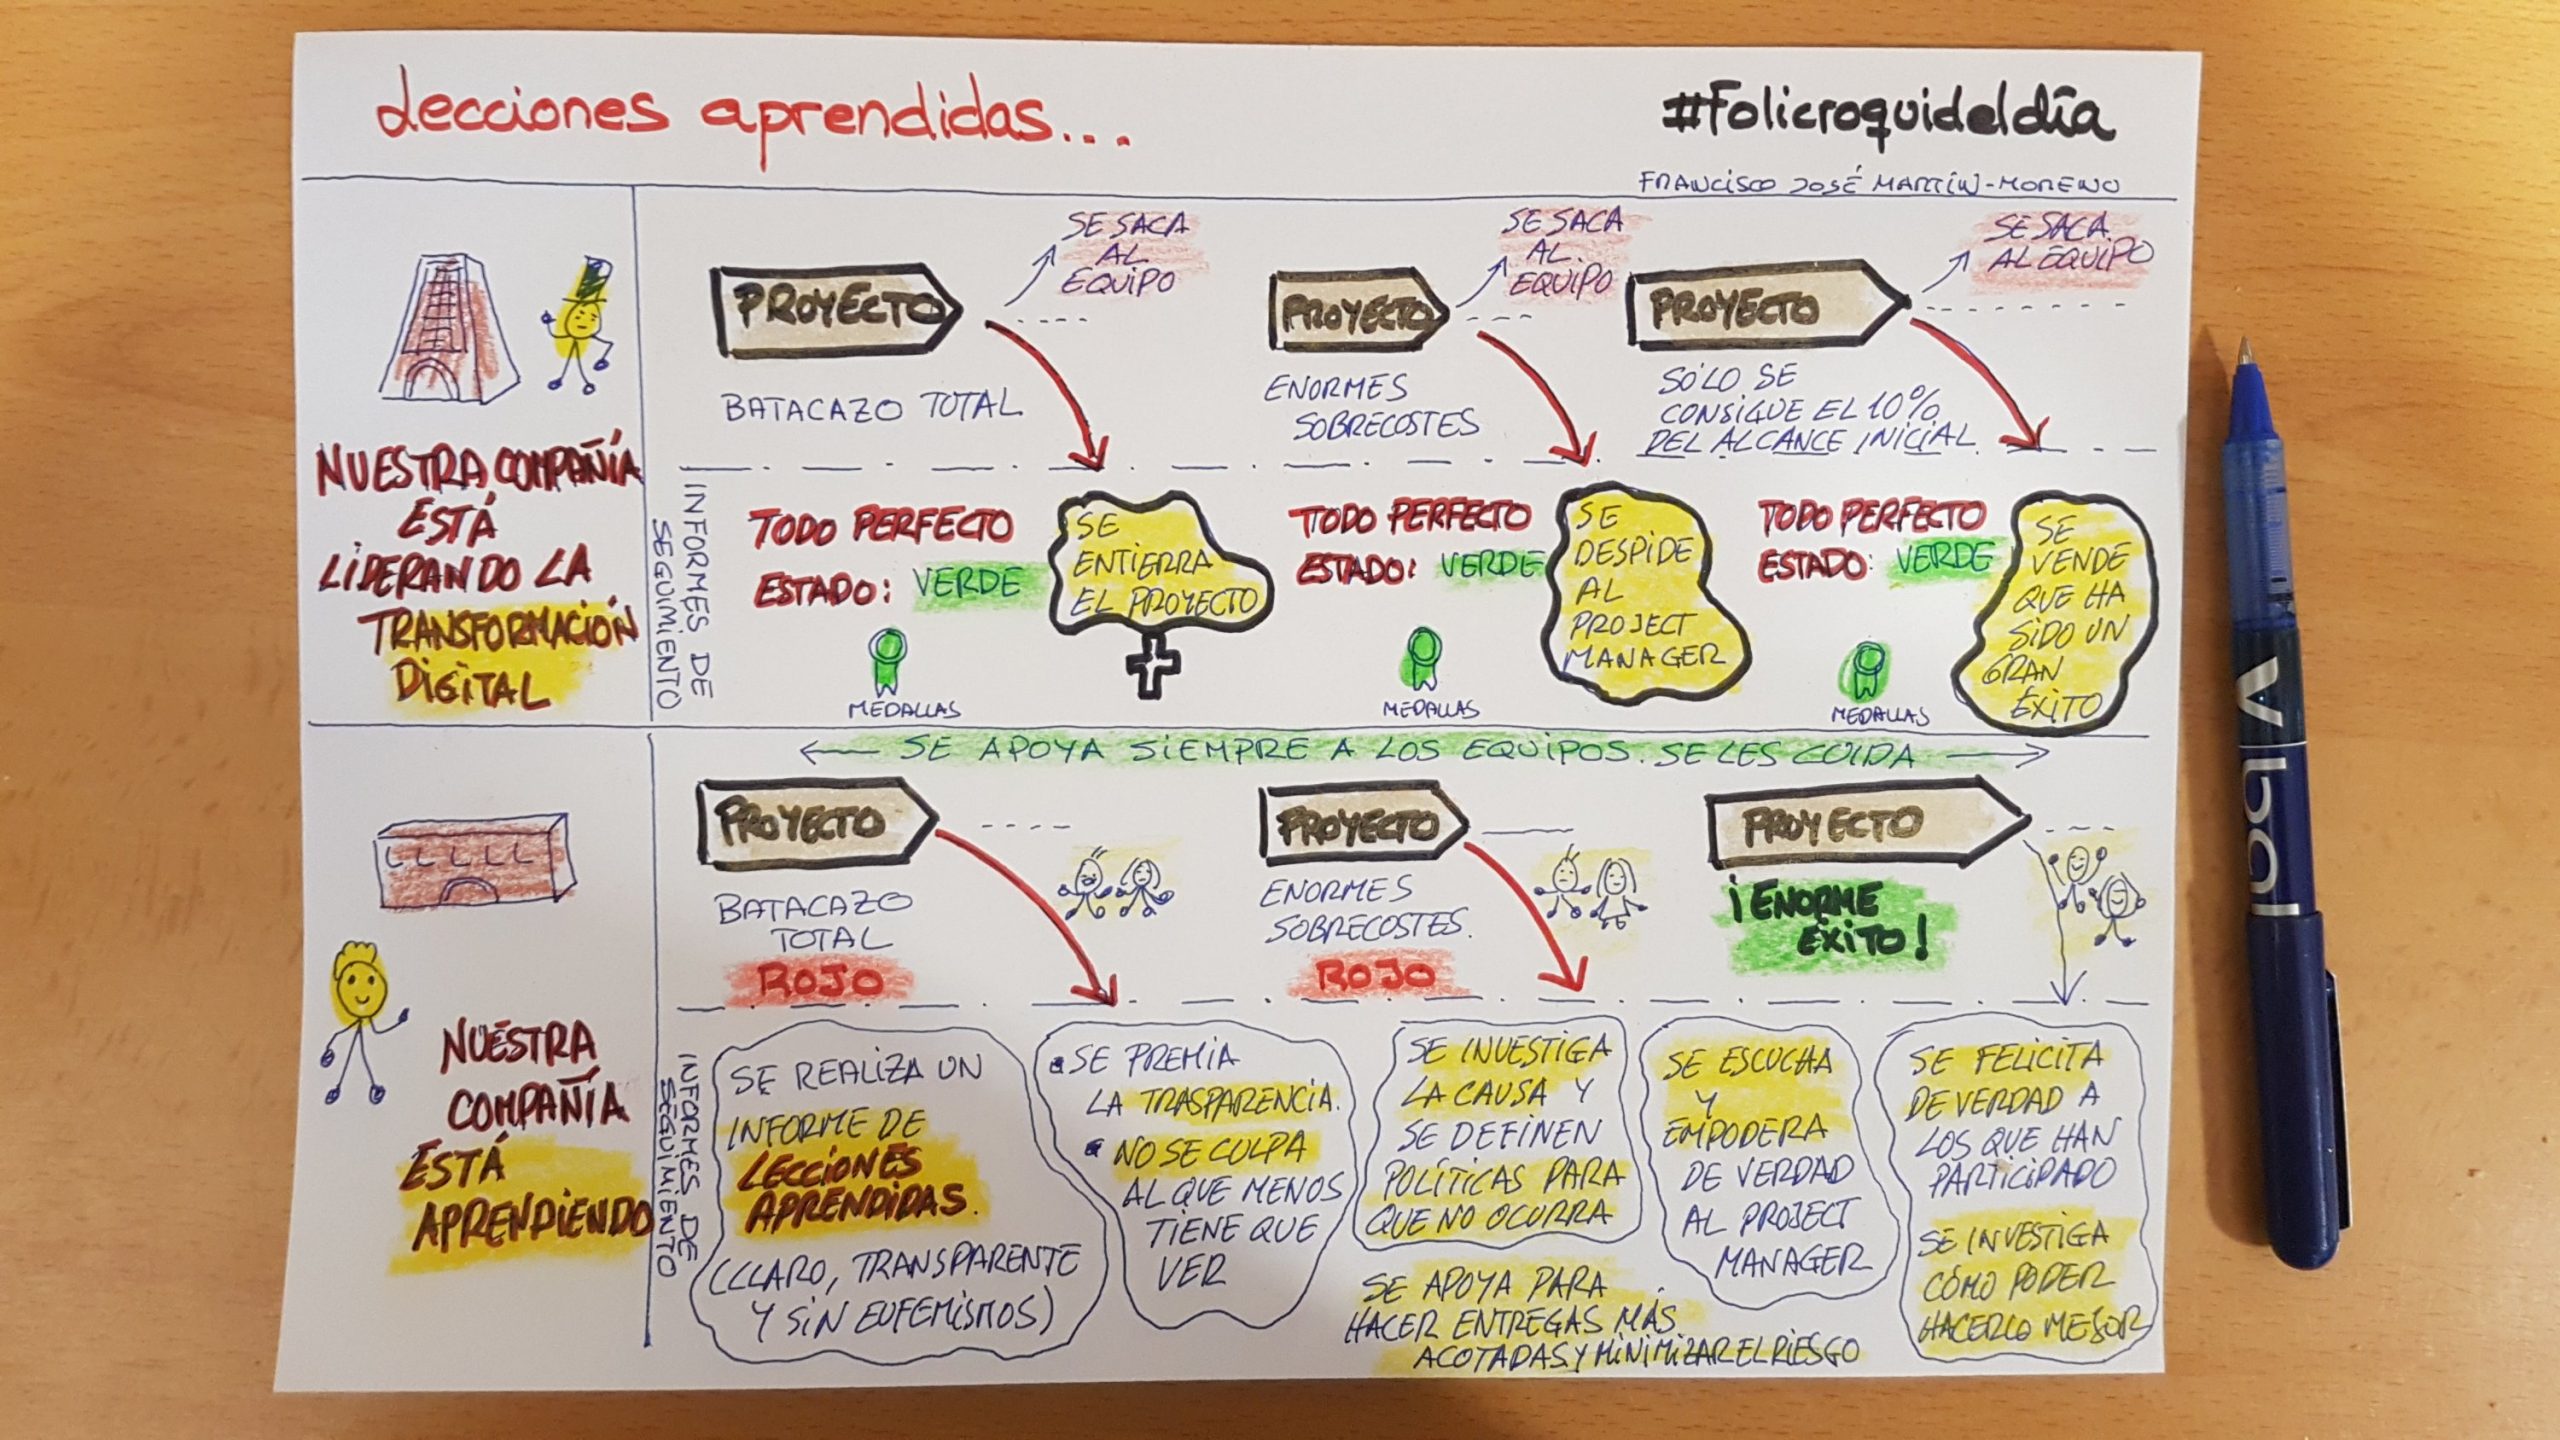 Lecciones aprendidas...
#Folicroquideldía
FRANCISCO JOSÉ MARTÍN-MORENO
NUESTRA COMPAÑÍA
ESTÁ
LIDERANDO LA
TRANSFORMACIÓN
DIGITAL
PROYECTO
SE SACA
AL
EQUIPO
BATACAZO TOTAL
PROYECTO
SE SACA
AL
EQUIPO
ENORMES
SOBRECOSTES
PROYECTO
SE SACA
AL EQUIPO
SÓLO SE
CONSIGUE EL 10%
DEL ALCANCE INICIAL
INFORMES DE
SEGUIMIENTO
TODO PERFECTO
ESTADO: VERDE
MEDALLAS
SE
ENTIERRA
EL PROYECTO
TODO PERFECTO
ESTADO: VERDE
MEDALLAS
SE
DESPIDE
AL
PROJECT
MANAGER
TODO PERFECTO
ESTADO: VERDE
MEDALLAS
SE
VENDE
QUE HA
SIDO UN
GRAN
ÉXITO
SE APOYA SIEMPRE A LOS EQUIPOS. SE LES CUIDA
NUESTRA
COMPAÑÍA
ESTÁ
APRENDIENDO
PROYECTO
BATACAZO
TOTAL
ROJO
PROYECTO
ENORMES
SOBRECOSTES.
ROJO
PROYECTO
¡ENORME
ÉXITO!
INFORMES DE
SEGUIMIENTO
SE REALIZA UN
INFORME DE
LECCIONES
APRENDIDAS.
(CLARO, TRANSPARENTE
Y SIN EUFEMISMOS)
• SE PREMIA
LA TRASPARENCIA.
• NO SE CULPA
AL QUE MENOS
TIENE QUE
VER
SE INVESTIGA
LA CAUSA Y
SE DEFINEN
POLÍTICAS PARA
QUE NO OCURRA
SE APOYA PARA
HACER ENTREGAS MÁS
ACOTADAS Y MINIMIZAR EL RIESGO
SE ESCUCHA
Y
EMPODERA
DE VERDAD
AL PROJECT
MANAGER
SE FELICITA
DE VERDAD A
LOS QUE HAN
PARTICIPADO
SE INVESTIGA
CÓMO PODER
HACERLO MEJOR
V ball